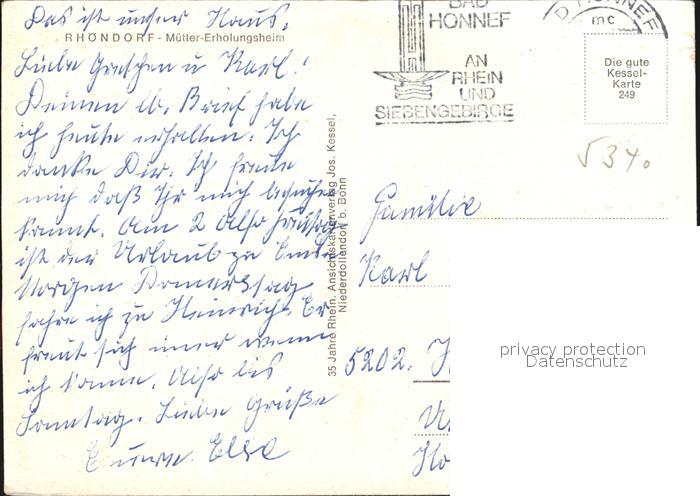 Das ist unser Haus.
RHÖNDORF - Mütter-Erholungsheim
Liebe Gretchen u Karl!
Deinen lb. Brief habe
ich heute erhalten. Ich
danke Dir. Ich freue
mich daß Ihr mich besuchen
kommt. Am 2 Also
ist der Urlaub zu Ende
Morgen Donnerstag
fahre ich zu Heinrich. Er
freut sich immer wenn
ich komme. Also bis
Sonntag. Liebe Grüße
Eurer Elsa
35 Jahre Rhein. Ansichtskartenverlag Jos. Kessel,
Niederdollendorf b. Bonn
BAD
HONNEF
AN
RHEIN
UND
SIEBENGEBIRGE
D HONNEF
mc
Die gute
Kessel-
Karte
249
√340
Familie
Karl
5202. H
U
Ho
privacy protection
Datenschutz